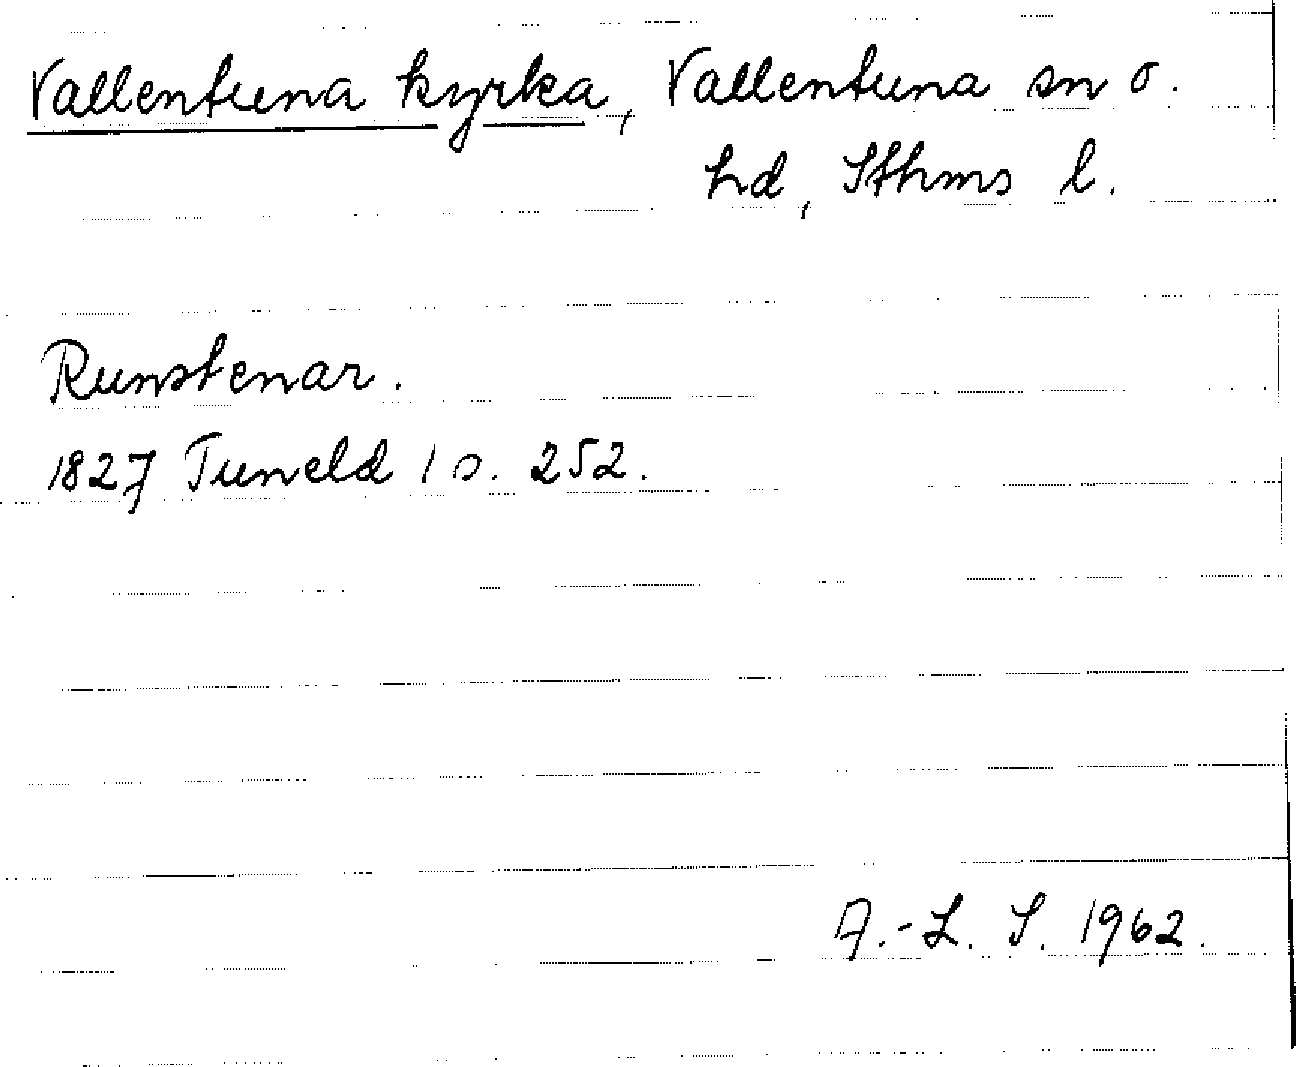 Vallentuna kyrka, Vallentuna sn o.
hd, Sthms l.
Runstenar.
1827 Tuneld 1 s. 252.
A.-L. S. 1962.